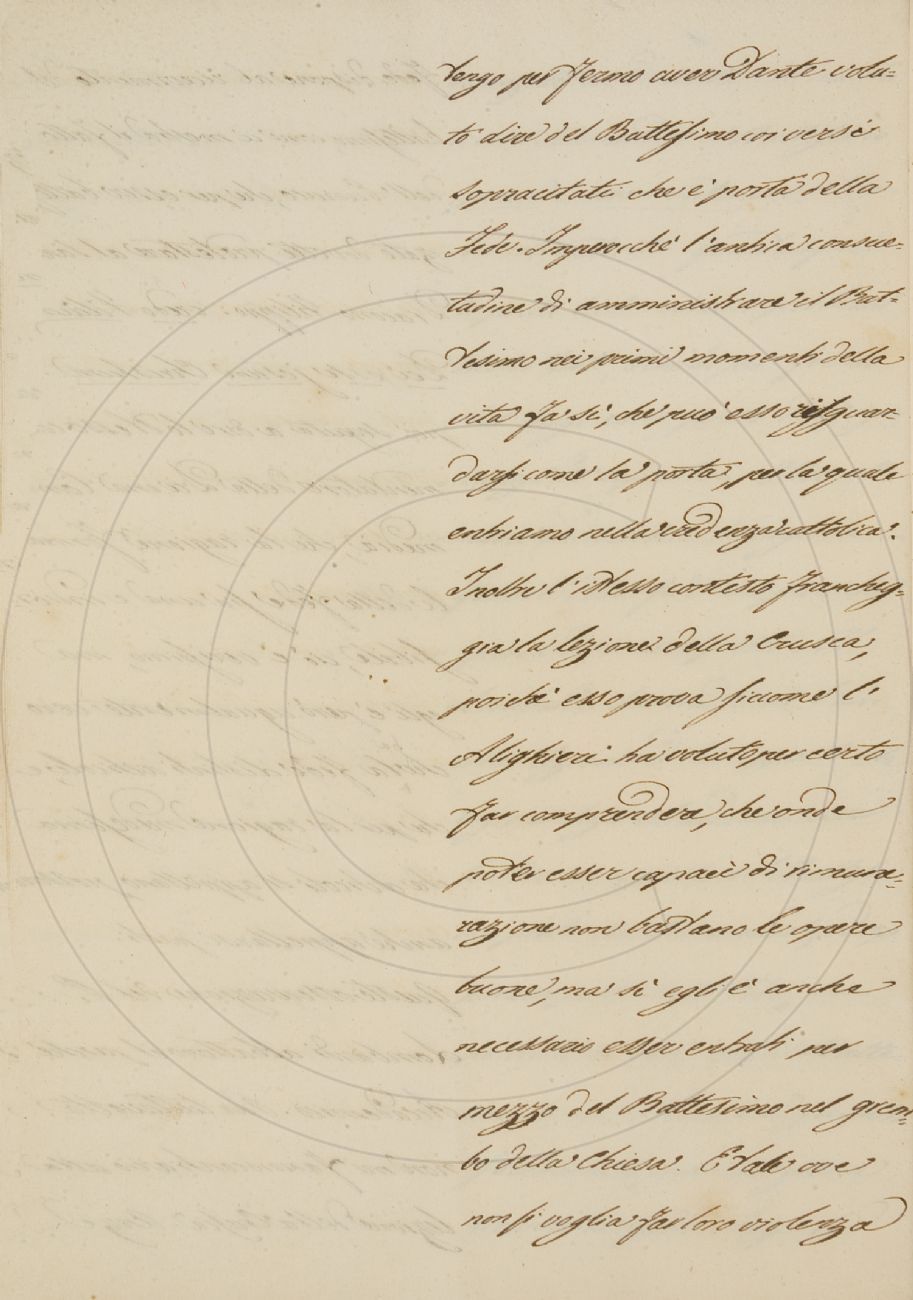 tengo per fermo aver Dante volu=
to dire del Battesimo coi versi
sopracitati che è porta della
Fede. Imperocchè l'antica consue=
tudine di amministrare il Bat=
tesimo nei primi momenti della
vita fa sì, che può esso risguar=
darsi come la porta, per la quale
entriamo nella credenza cattolica.
Inoltre l'istesso contesto fracheg=
gia la lezione della Crusca,
poichè esso prova siccome l'
Alighieri ha voluto per certo
far comprendere, che onde
poter esser capaci di rimune=
razione non bastano le opere
buone, ma sì egli è anche
necessario esser entrati per
mezzo del Battesimo nel grem=
bo della Chiesa. E tale ove
non si voglia far loro violenza